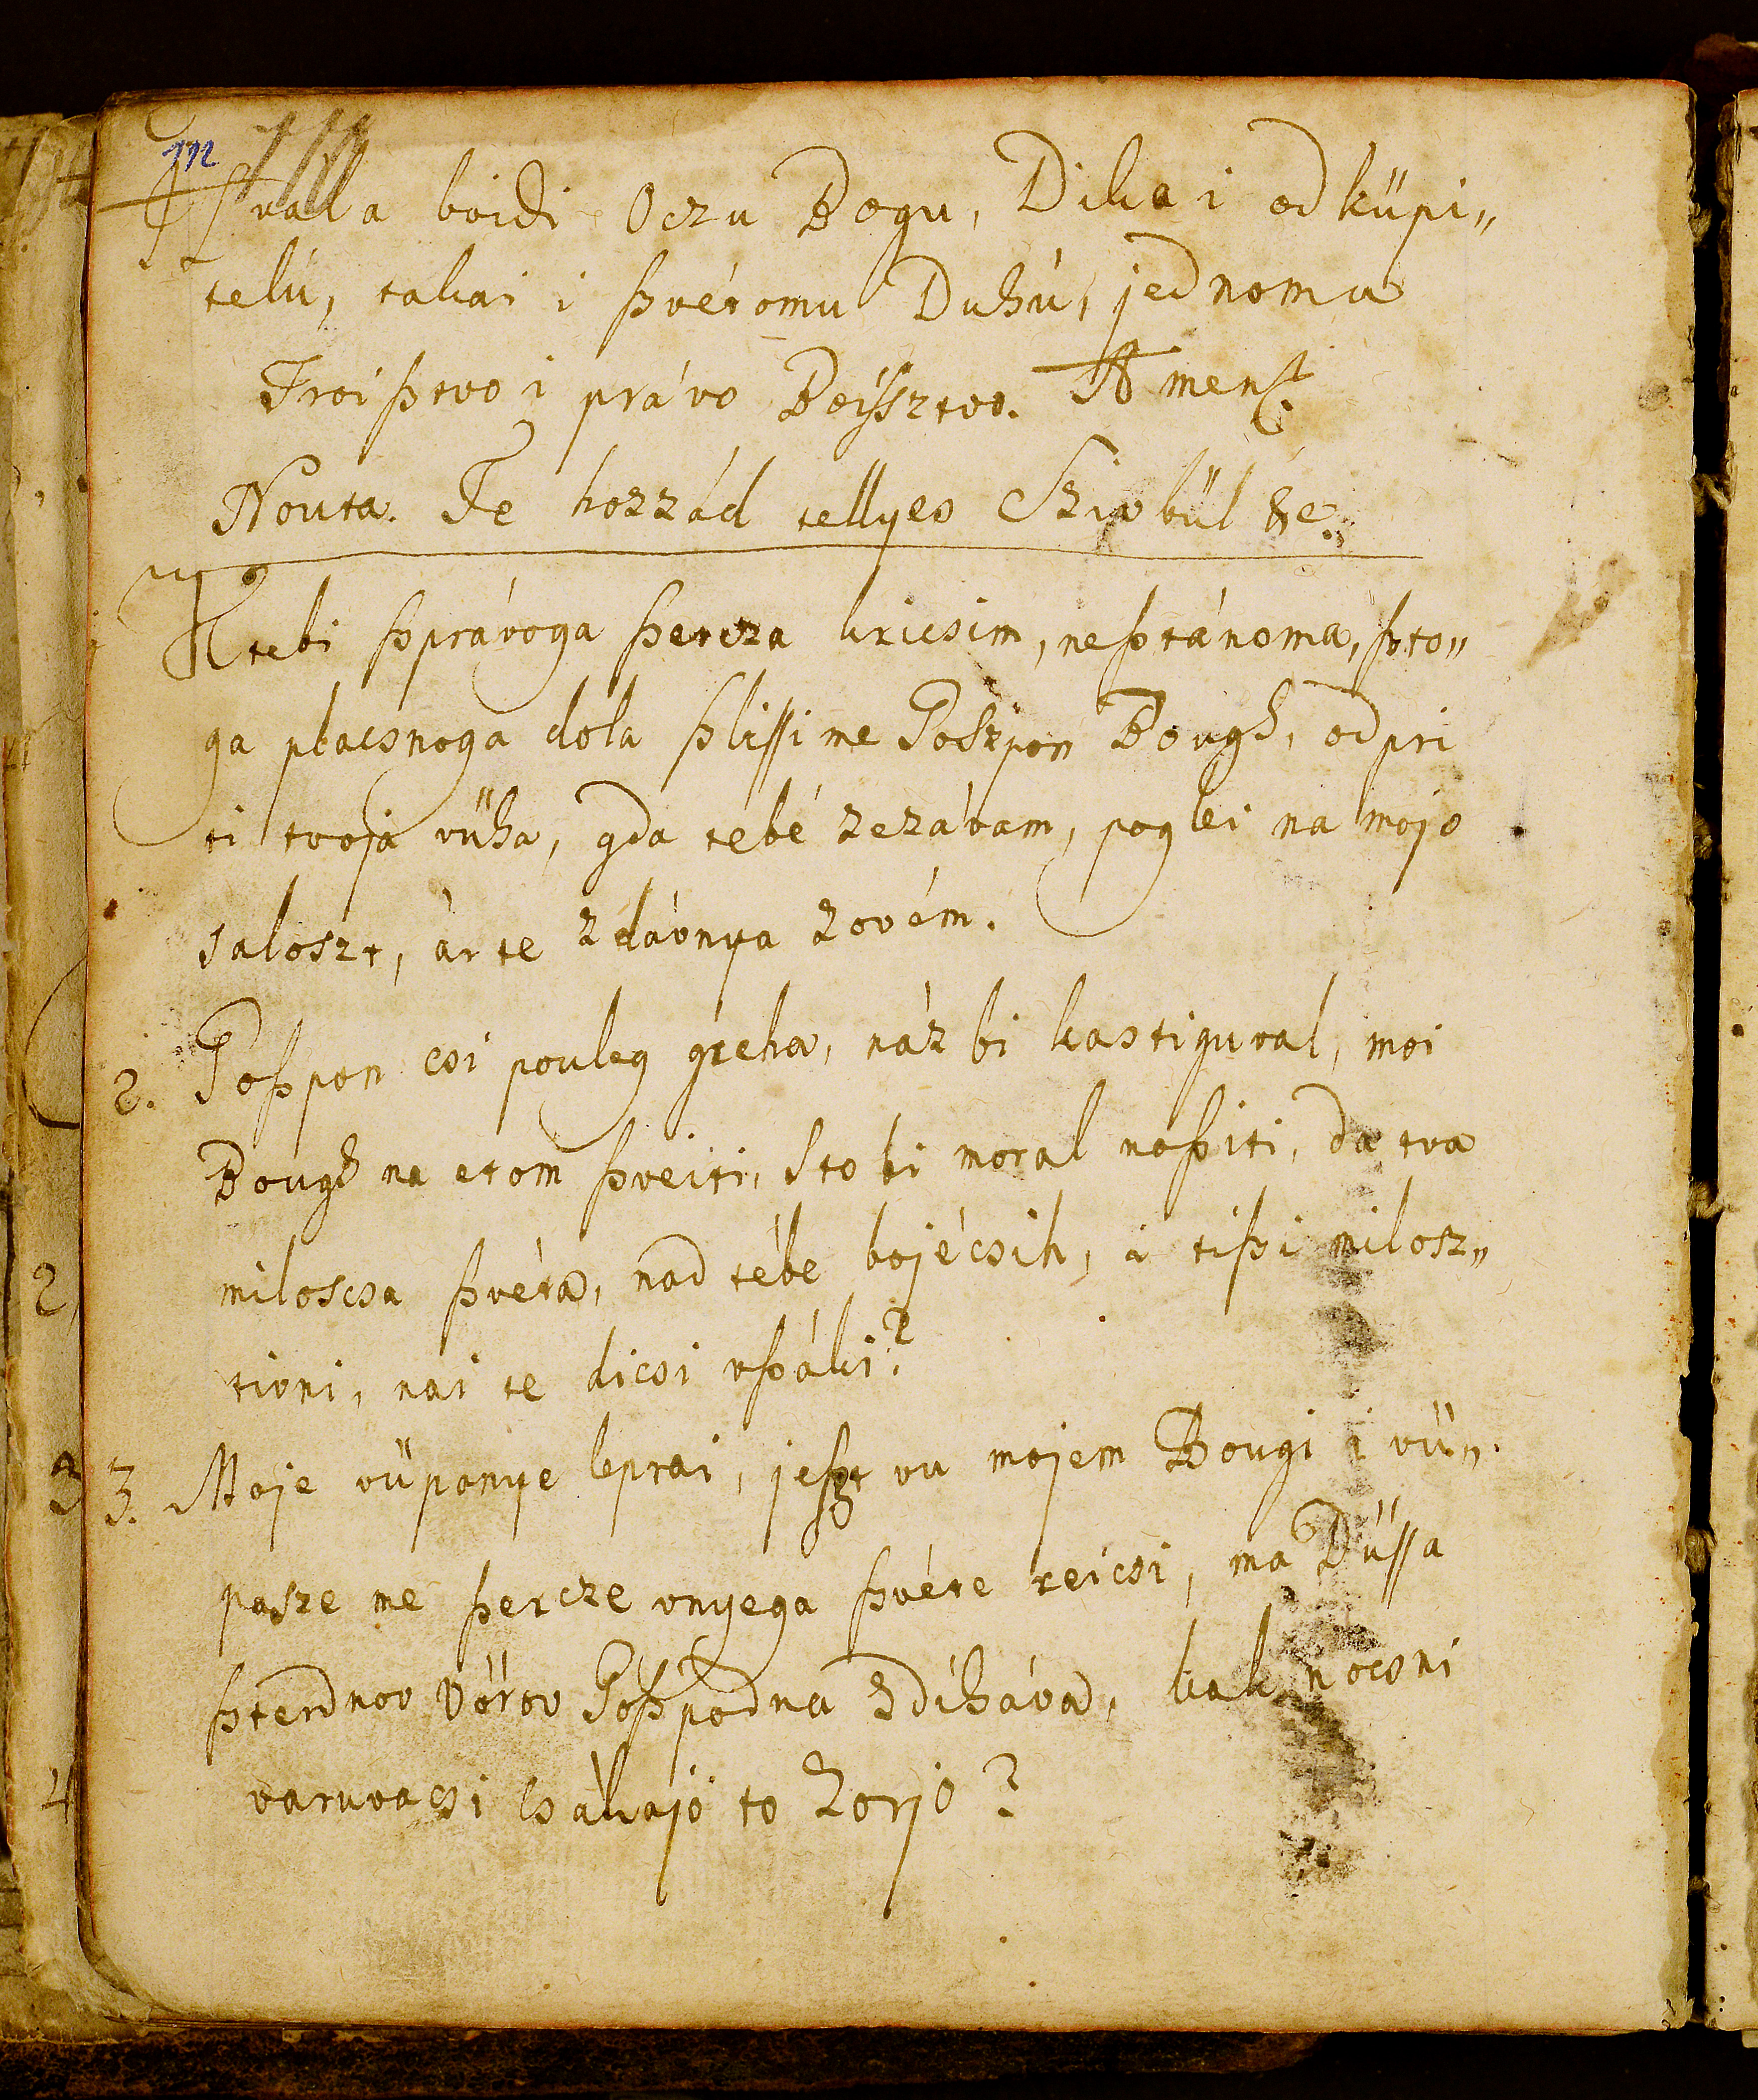 112
Hvala boidi Oczu Bogu, Dika i odküpi„
telü, takai i ſzvétomu Duhú, jednomu
Troiſztvo i právo Boiſsztvo. Amen.
Nouta. Te hozzád tellyes Szivbül &c.
K tebi ſzprávoga ſzercza kricsim, neſztánoma, ſzto„
ga placsnoga dola ſzliſſi me Goszpon Bough, odpri
ti tvoja vüha, gda tebé zezávam, poglei na mojo
saloszt, ár te zdávnya zovém.
2. Goſzpon csi pouleg greha, náz bi kastiguval, moi
Bough na etom ſzveiti, Sto bi moral noſziti, da tva
miloscsa ſzvéta, nad tébe bojécsih, i tiſzi milosz„
tivni, nai te dicsi vſzáki?
3. Moje vüpanye leprai, jeſzt vu mojem Bougi i vü„
pasze me ſzercze vnyega ſzvéte reicsi, ma Düſſa
ſzterdnov vörov Goſzpodna zdiháva, kak nocsni
varuvacsi csákajo to Zorjo?